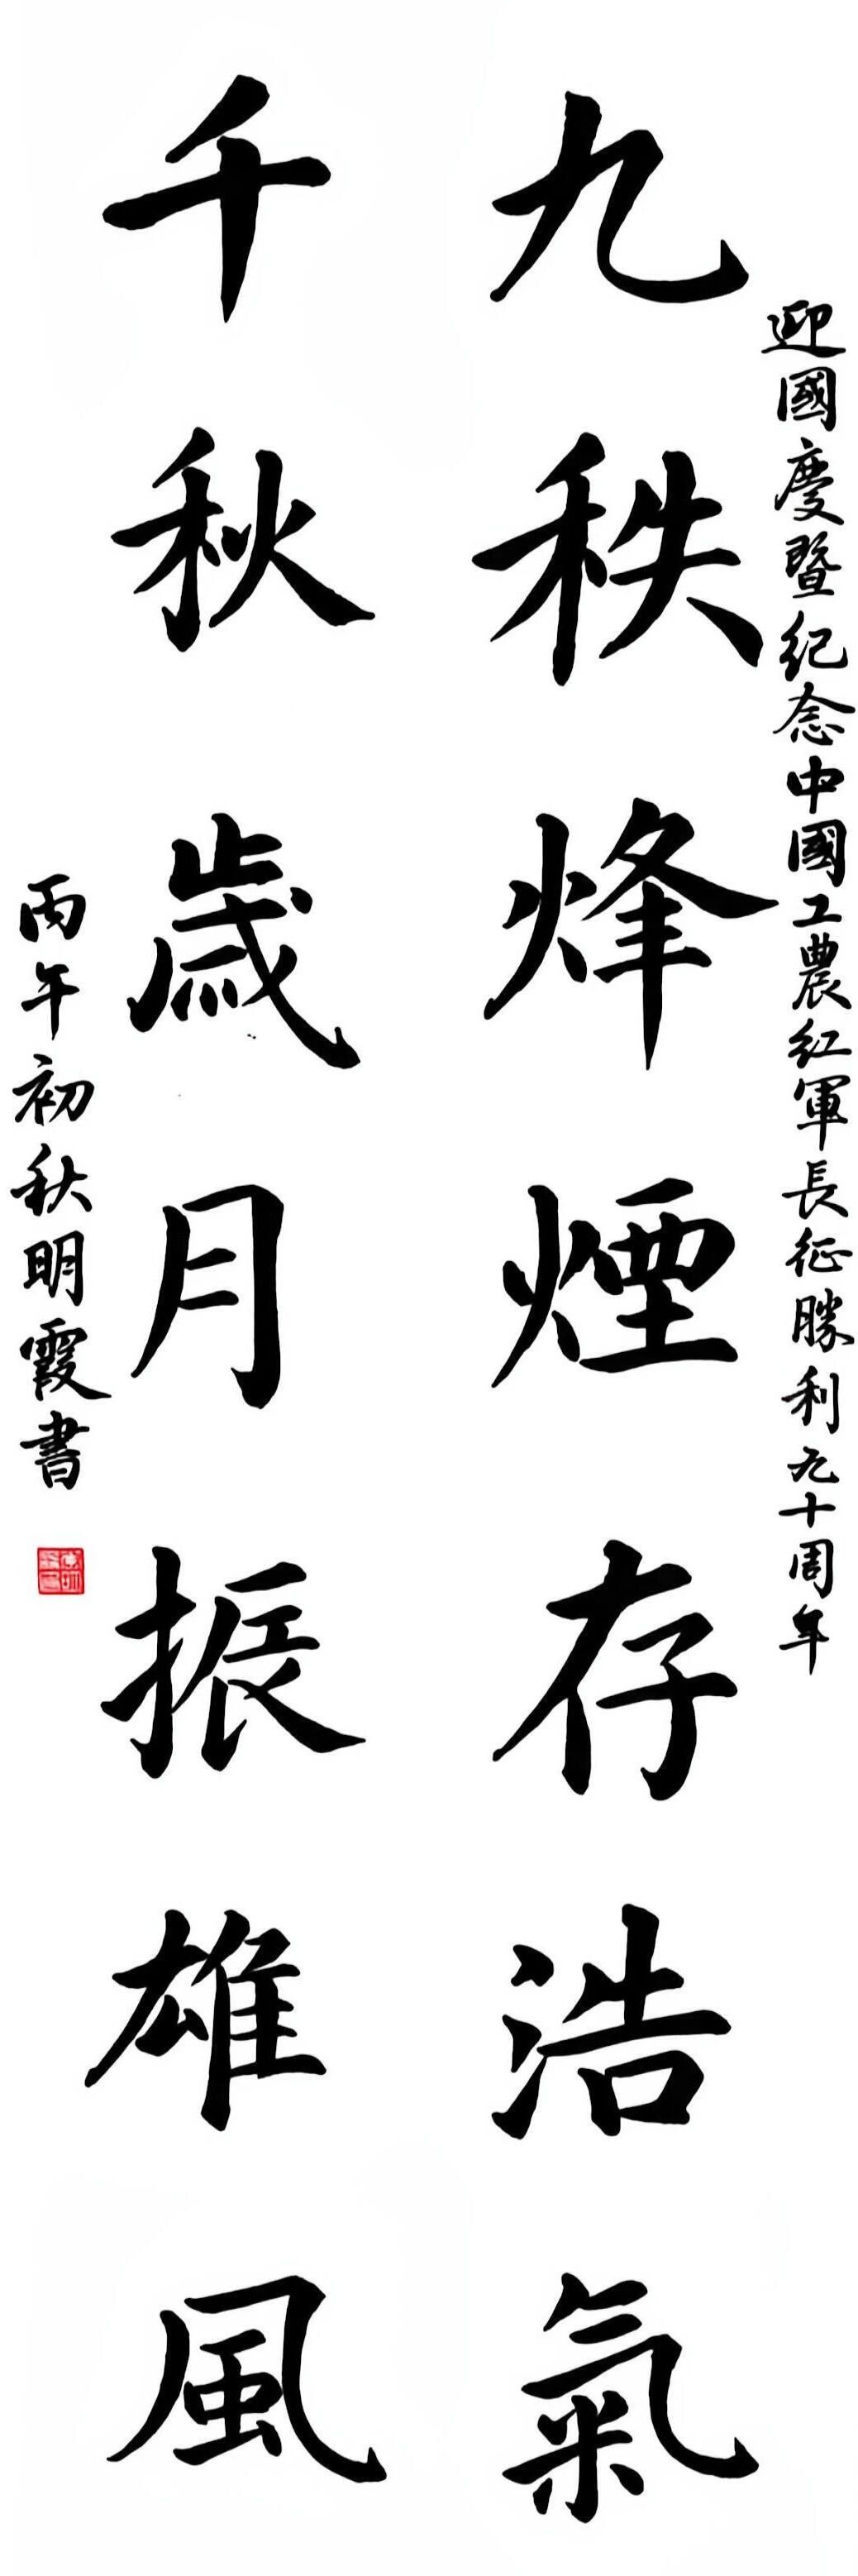 迎國慶暨纪念中國工農红軍長征勝利九十周年
九秩烽煙存浩氣
千秋歳月振雄風
丙午初秋明霞書